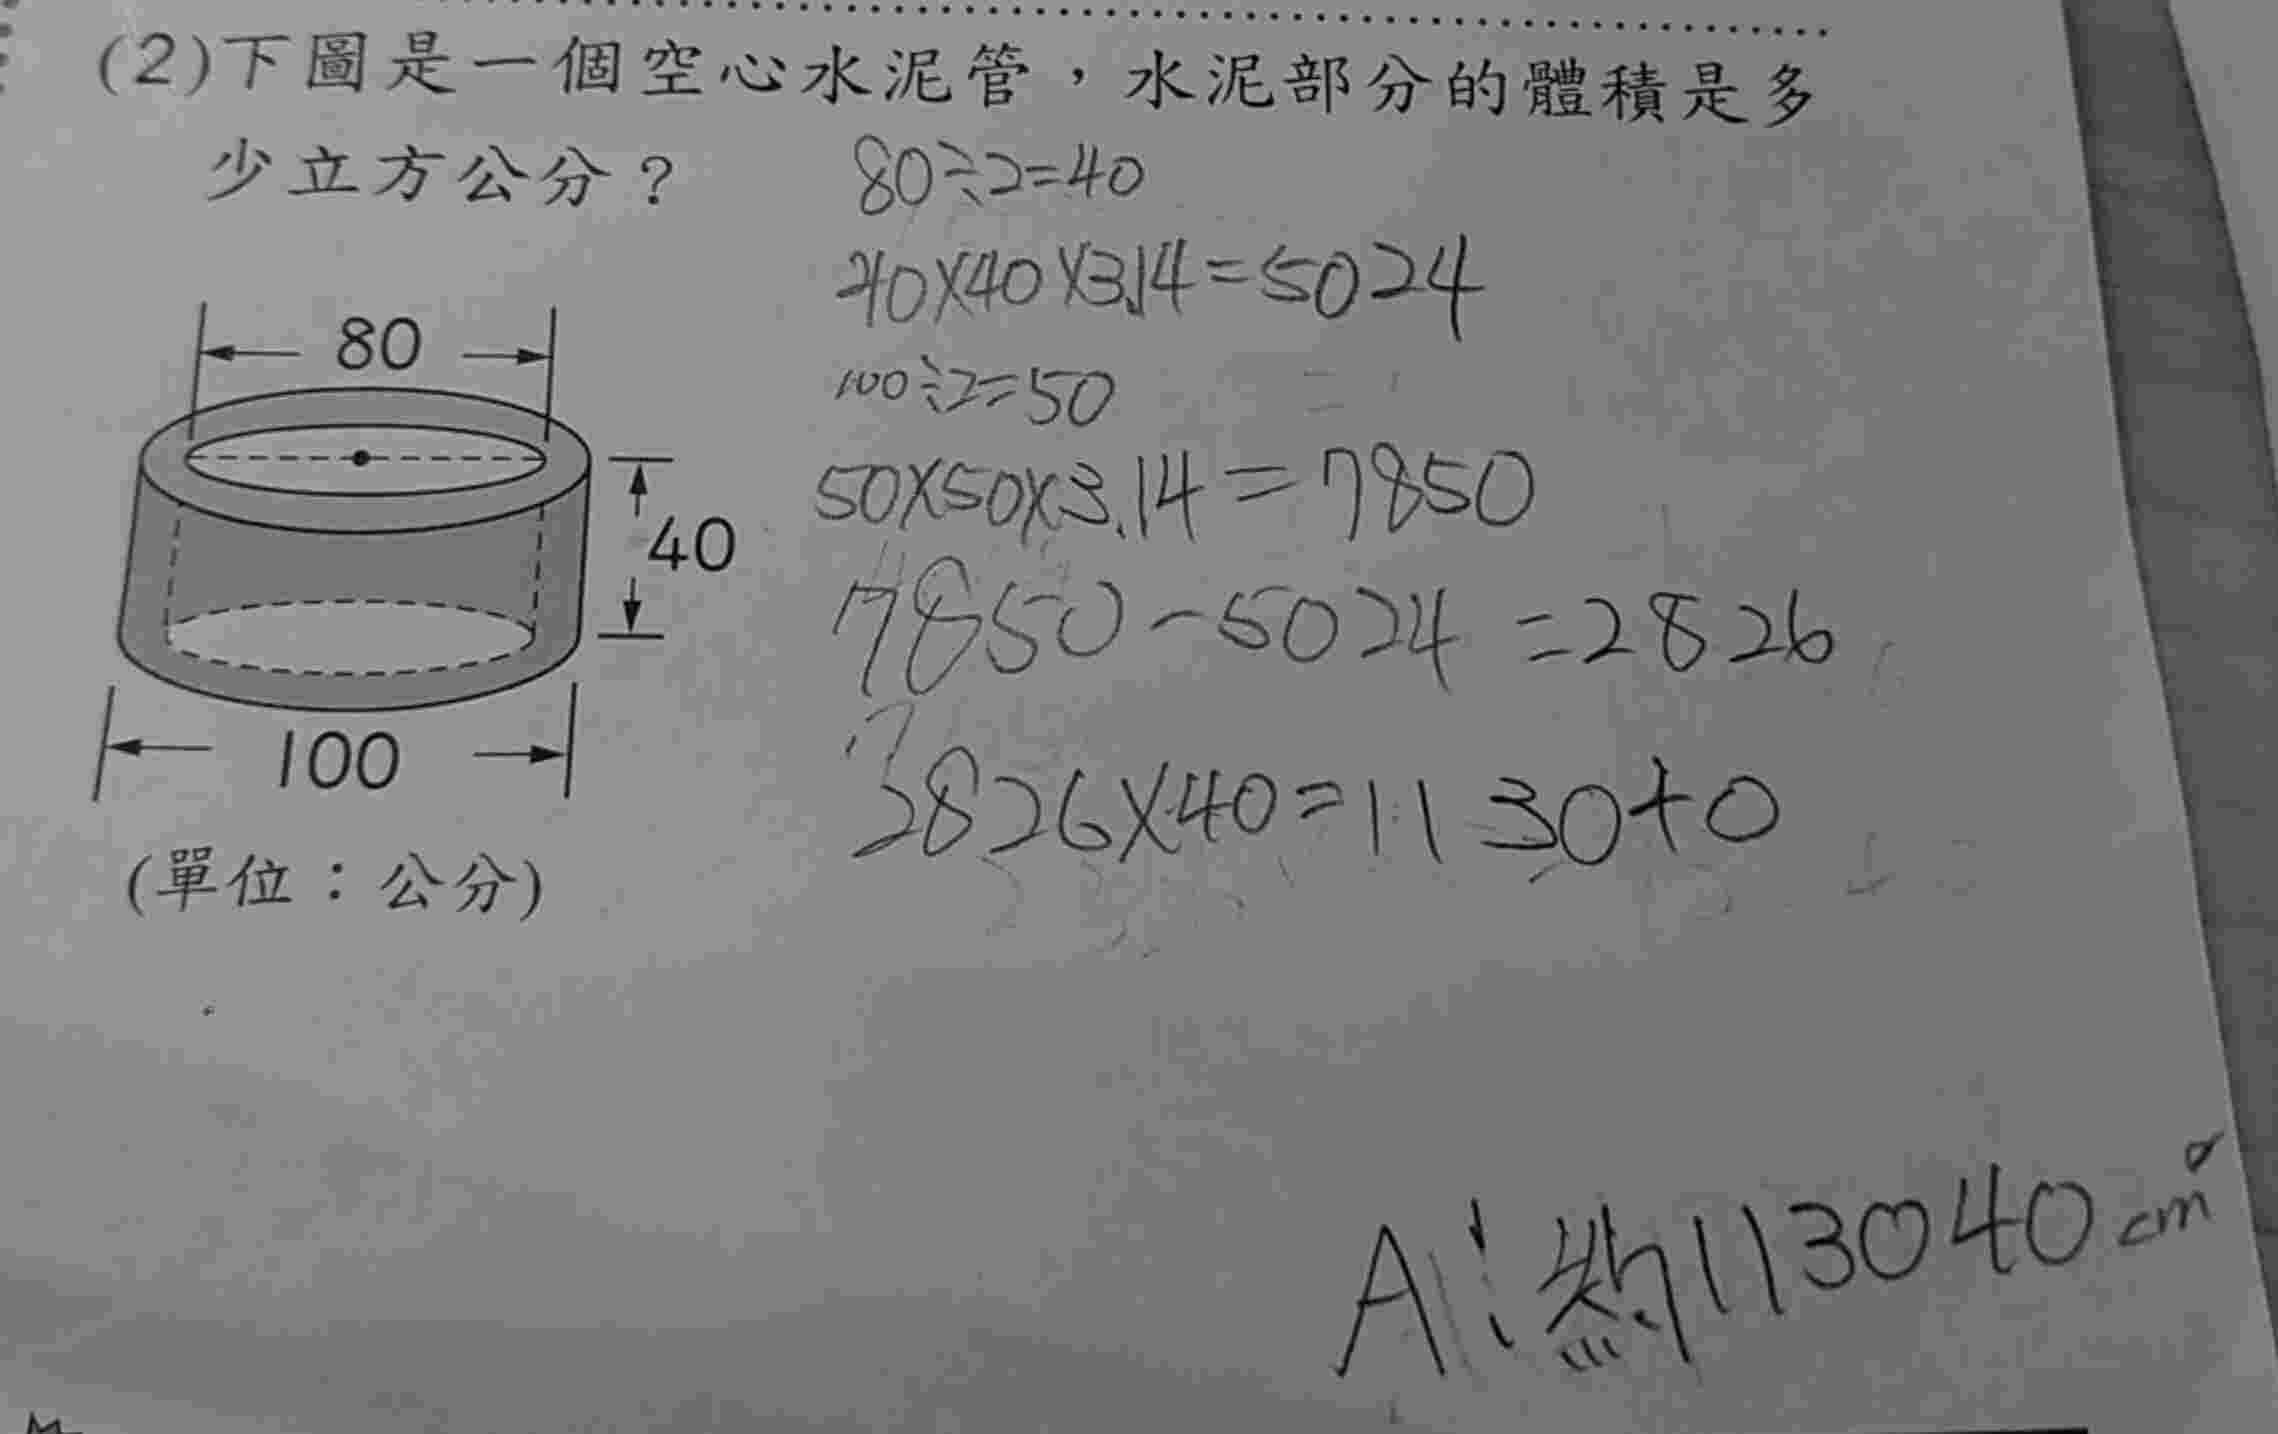 (2)下圖是一個空心水泥管，水泥部分的體積是多
少立方公分？
80÷2=40
40×40×3.14=5024
100÷2=50
50×50×3.14=7850
7850-5024=2826
2826×40=113040
80
40
100
(單位：公分)
A:約113040cm